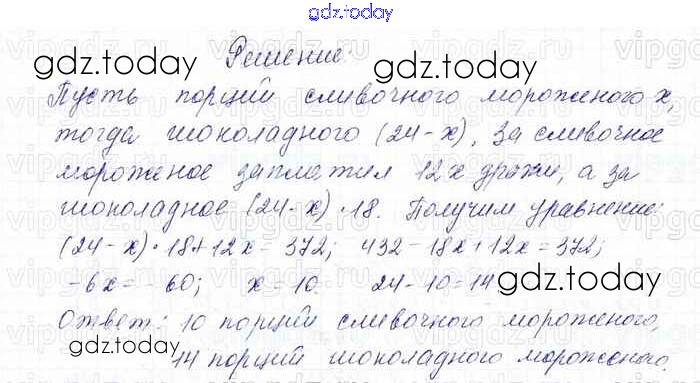 gdz.today
Решение.
gdz.today gdz.today
Пусть порций сливочного мороженого x,
тогда шоколадного (24-x). За сливочное
мороженое заплатил 12x драхм, а за
шоколадное (24-x)·18. Получим уравнение:
(24-x)·18+12x=372; 432-18x+12x=372;
-6x=-60; x=10 24-10=14
gdz.today
Ответ: 10 порций сливочного мороженого,
gdz.today
14 порций шоколадного мороженого.